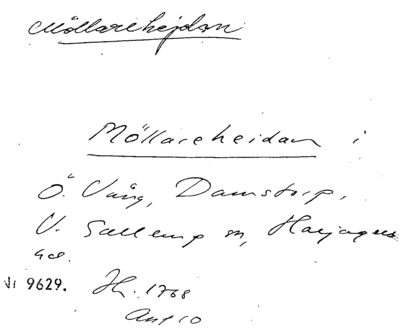 Möllarehejdan
Möllareheidan i
Ö. Vång, Damstorp,
V. Sallerup sn, Harjagers
hd.
Vi 9629. Jh. 1768
Ant 10